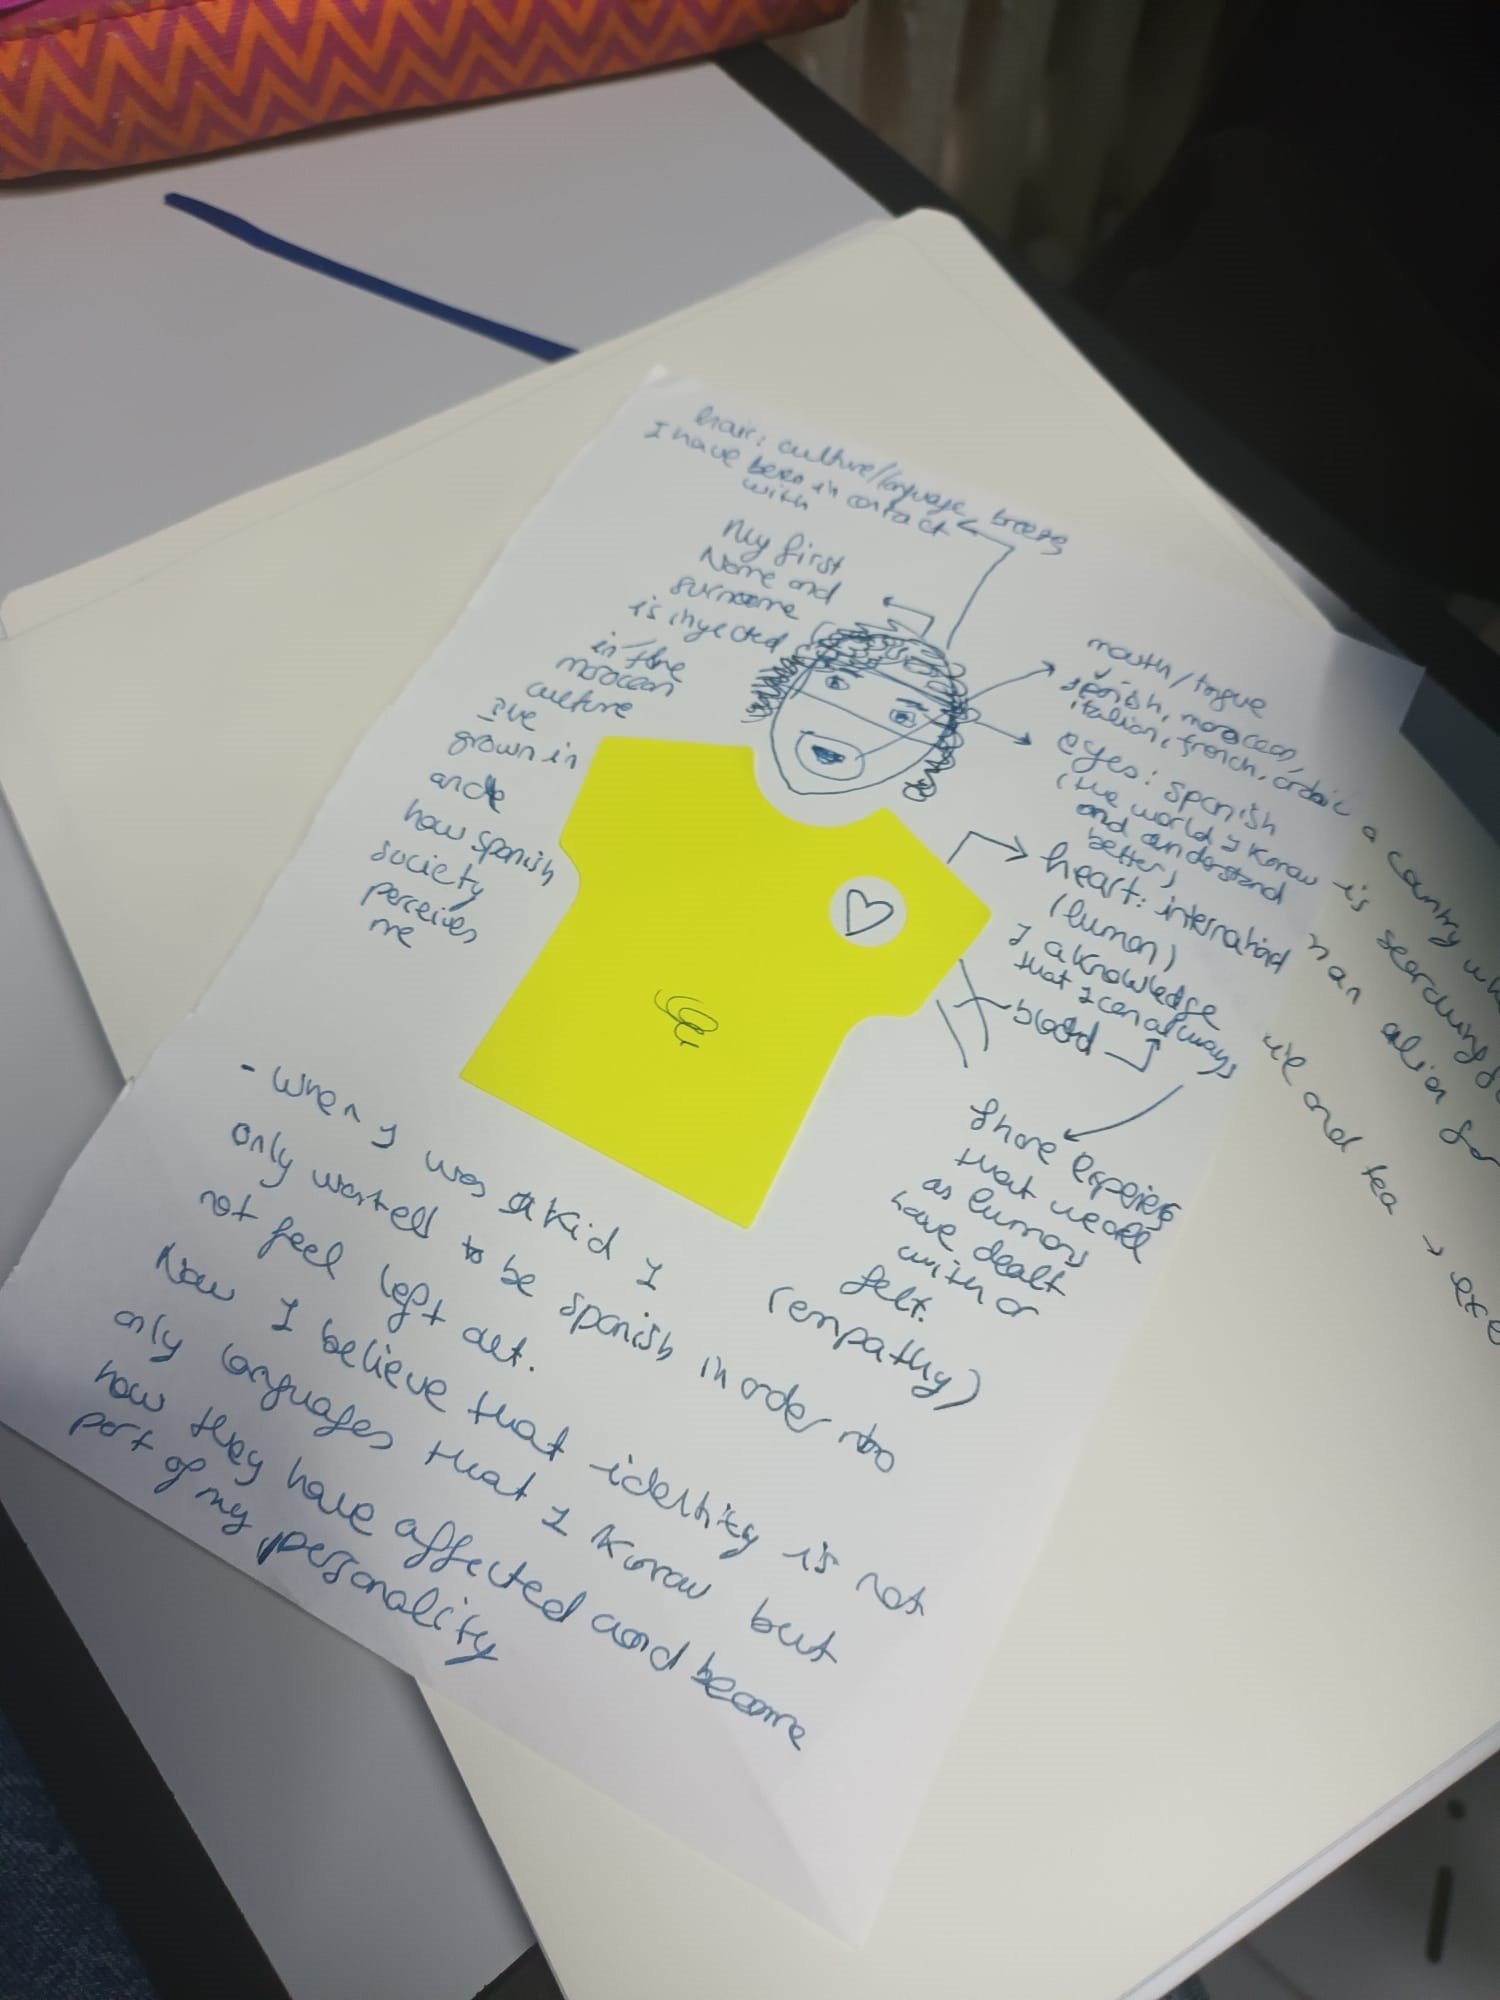 hair: culture/language breeze
I have been in contact
with
My first
Name and
surname
is injected
in the
moroccan
culture
I've
grown in
and
how spanish
society
perceives
me
mouth/tongue
spanish, moroccan,
italian, french, arabic
eyes: spanish
(the world I know
and understand
better)
heart: international
(human)
I aknowledge
that I can always
blood
share experies
that we all
as humans
have dealt
with or
felt.
(empathy)
- When I was a kid I
only wanted to be spanish in order to
not feel left out.
Now I believe that identity is not
only languages that I know but
how they have affected and become
part of my personality
a country
is searching
an alien for
and tea →